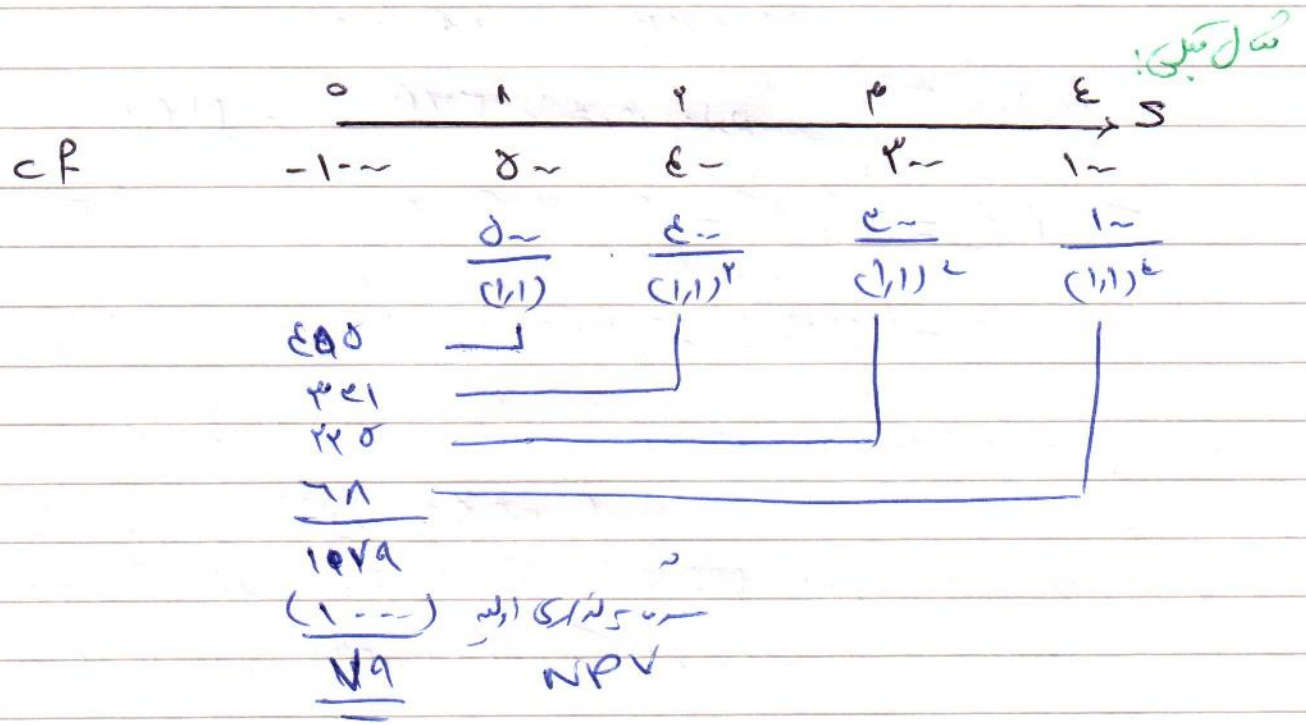 مثال قبلی:
۰ ۱ ۲ ۳ ٤ S
CF -۱۰۰۰ ۵۰۰ ٤۰۰ ۳۰۰ ۱۰۰
۵۰۰/(۱,۱) ٤۰۰/(۱,۱)^۲ ۳۰۰/(۱,۱)^۳ ۱۰۰/(۱,۱)^٤
٤۵۵
۳۳۱
۲۲۵
۶۸
۱۰۷۹
(۱۰۰۰) سرمایه گذاری اولیه
۷۹ NPV